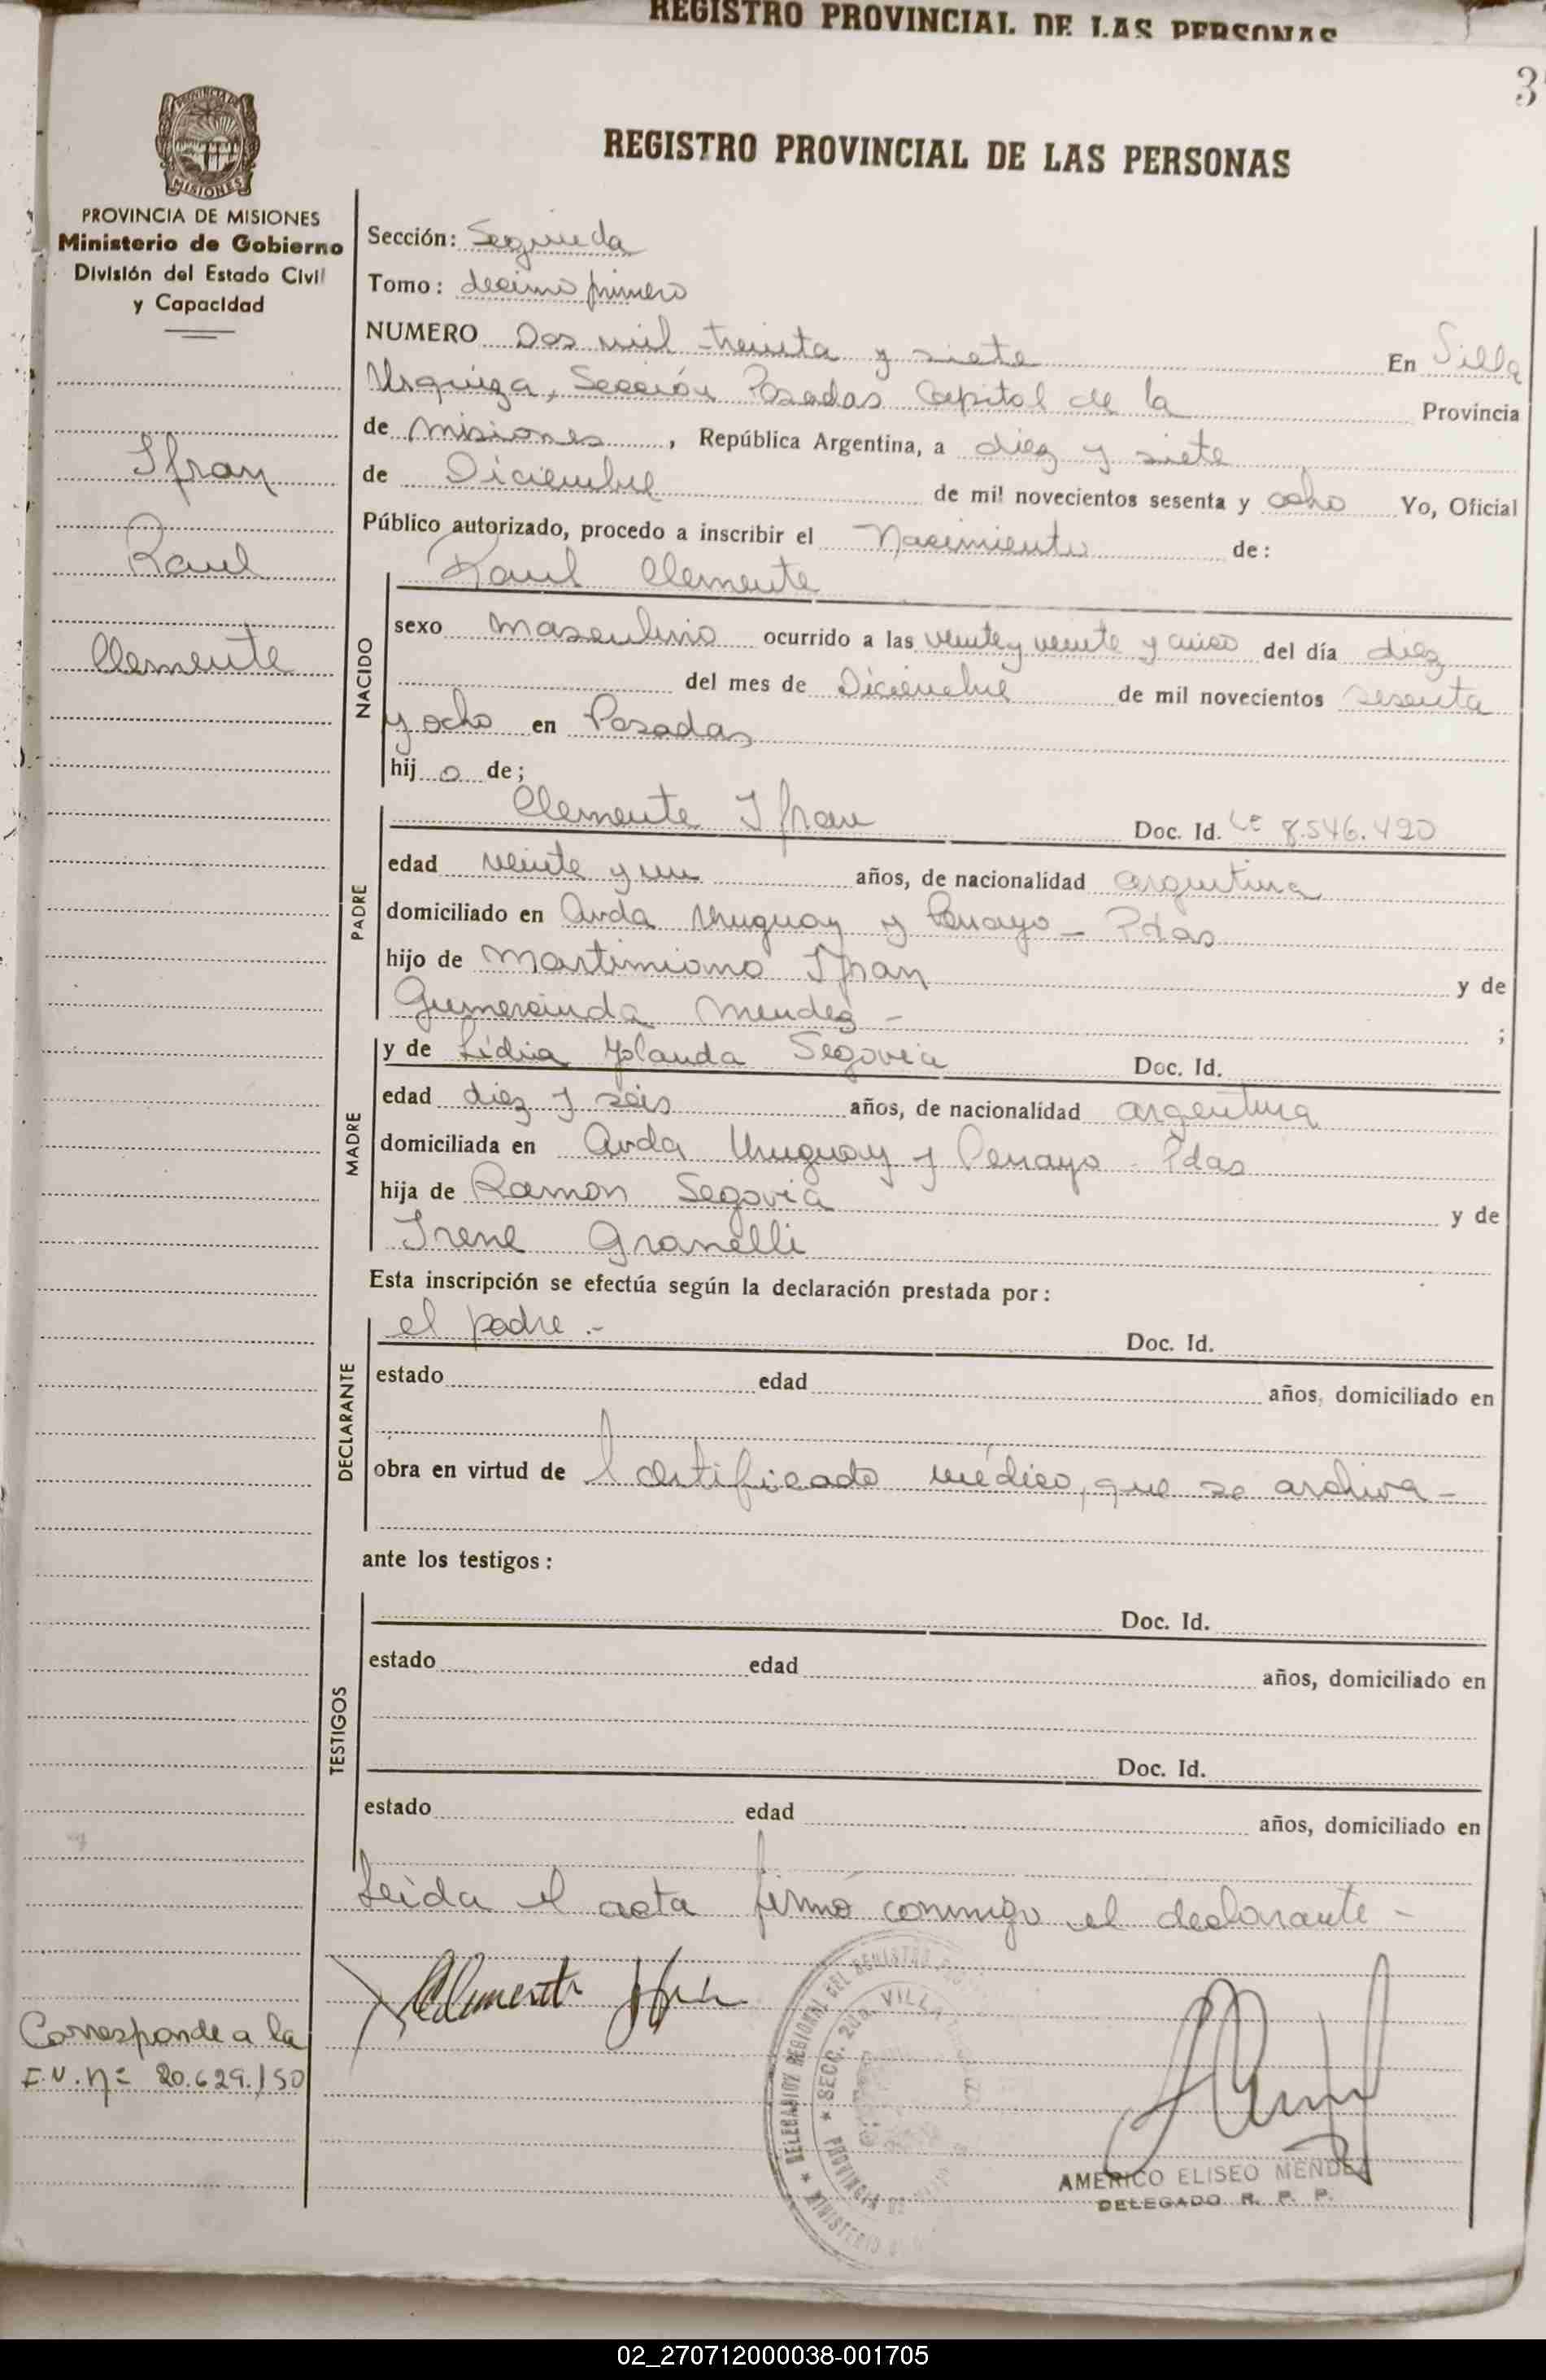 REGISTRO PROVINCIAL DE LAS PERSONAS
3
REGISTRO PROVINCIAL DE LAS PERSONAS
PROVINCIA DE MISIONES
Ministerio de Gobierno
División del Estado Civil
y Capacidad
Ifran
Raul
Clemente
Sección: Segunda
Tomo: decimo primero
NUMERO Dos mil treinta y siete En Villa
Urquiza, Sección Posadas Capital de la Provincia
de Misiones, República Argentina, a diez y siete
de Diciembre de mil novecientos sesenta y ocho Yo, Oficial
Público autorizado, procedo a inscribir el Nacimiento de:
NACIDO
Raul Clemente
sexo masculino ocurrido a las veinte y veinte y cinco del día diez
del mes de Diciembre de mil novecientos sesenta
y ocho en Posadas
hijo de;
PADRE
Clemente Ifran Doc. Id. LE 8.546.490
edad veinte y un años, de nacionalidad argentina
domiciliado en Avda Uruguay y Penayo - Pdas
hijo de Martimiano Ifran y de
Gumercinda Mendez - ;
MADRE
y de Lidia Yolanda Segovia Doc. Id.
edad diez y seis años, de nacionalidad argentina
domiciliada en Avda Uruguay y Penayo - Pdas
hija de Ramon Segovia y de
Irene Granelli
Esta inscripción se efectúa según la declaración prestada por:
DECLARANTE
el padre.- Doc. Id.
estado edad años, domiciliado en
obra en virtud de Certificado médico, que se archiva -
ante los testigos:
TESTIGOS
Doc. Id.
estado edad años, domiciliado en
Doc. Id.
estado edad años, domiciliado en
Leida el acta firmó conmigo el declarante -
Clemente Ifran
Corresponde a la
F.U. Nº 20.629.150
DELEGACION REGIONAL DEL REGISTRO
SECC. 2da. VILLA
PROVINCIA DE
MINISTERIO
AMERICO ELISEO MENDEZ
DELEGADO R. P. P.
02_270712000038-001705